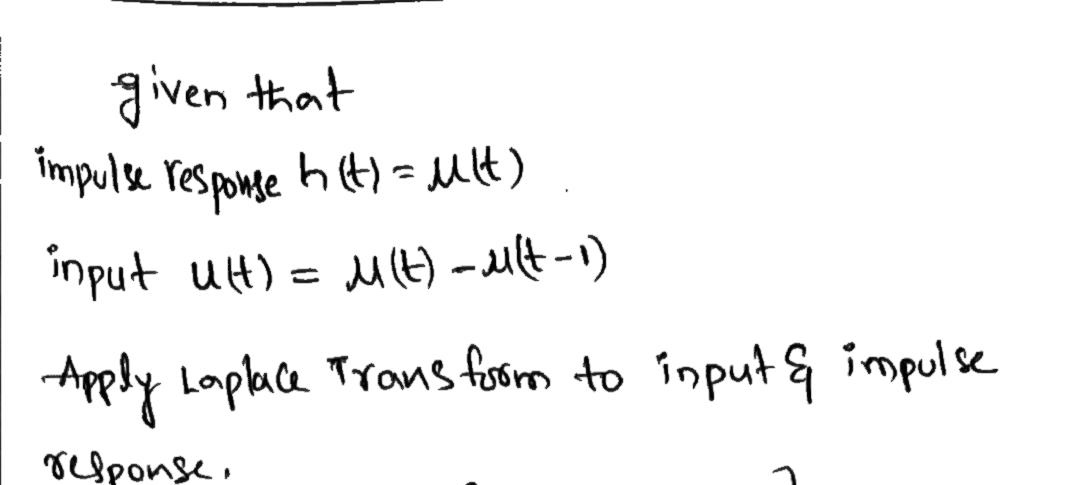 given that
impulse response h(t) = μ(t)
input u(t) = μ(t) - μ(t-1)
Apply Laplace Transform to input & impulse
response.